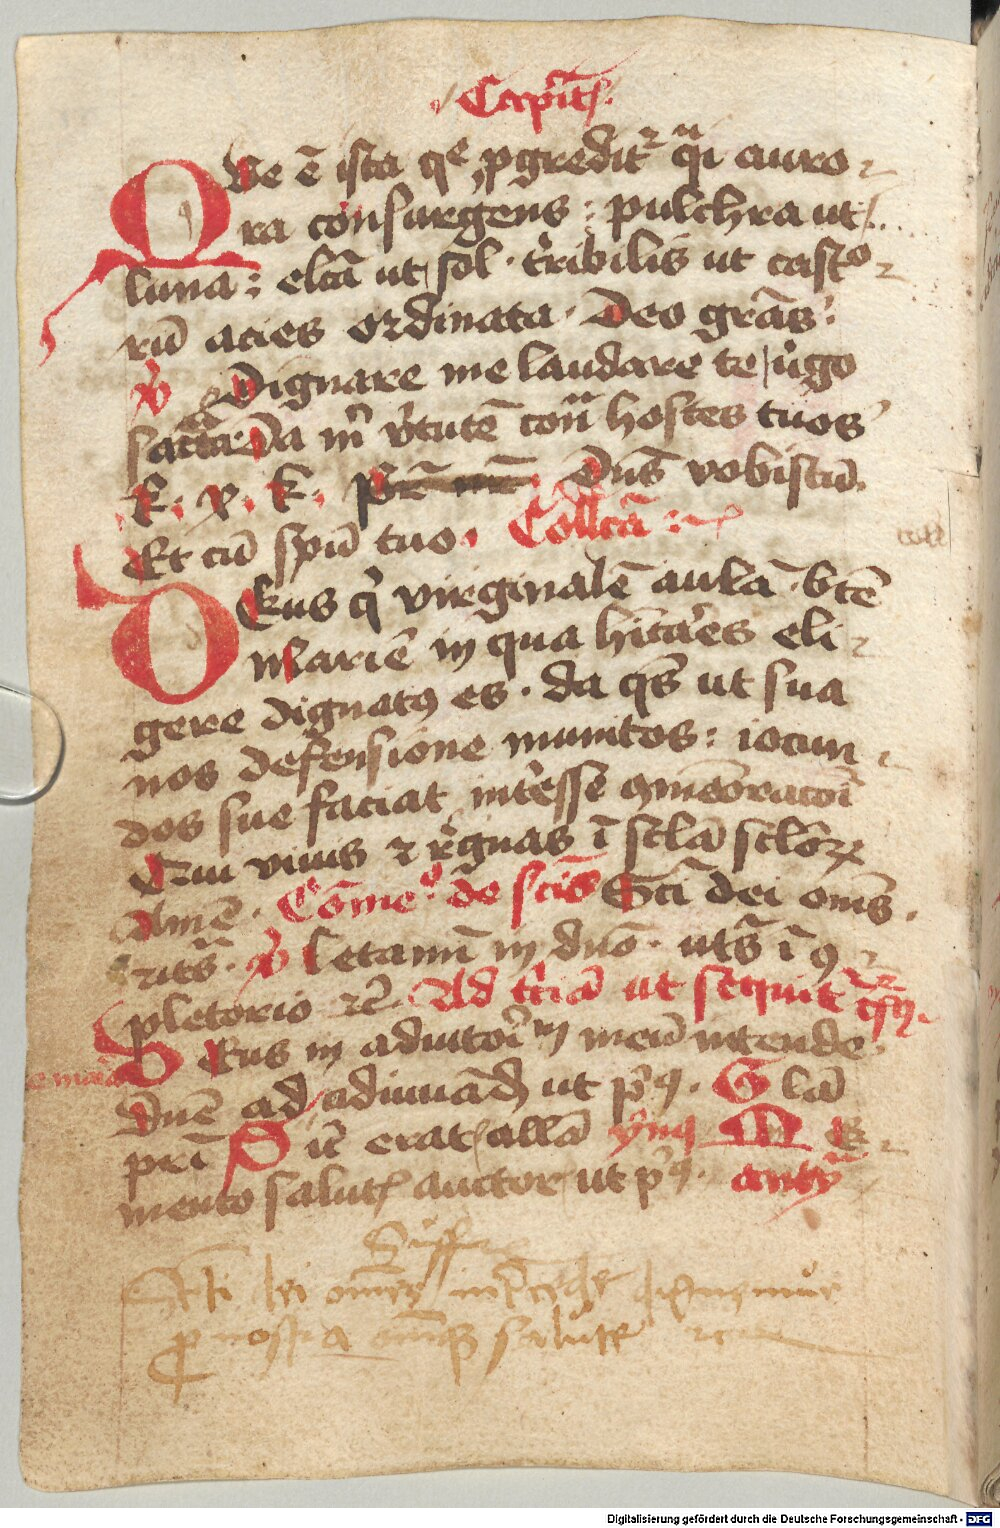 Capit̄
QVe ē ista qͤ ꝓgreditᷣ qͣi auro⸗
ra consurgens : pulchra ut
luna : elc̄a ut sol · tͬribilis ut casto⸗
rū acies ordinata · Deo grās :
℣ Dignare me laudare te ùgo
sacrata Da m̄ v̓tutē con̄ hostes tuos
k . x . k . Pr̄ nr̄ . Dn̄s vobiscū
Et cū sp̄u tuo . Coll̄cā :
DEus qͥ virginalē aulā · bt̄e
Marie in qua hītares eli⸗
gere dignatꝰ es · da qs̄ ut sua
nos defensione munitos : iocun⸗
dos sue faciat int̓esse ꝯmēoratoī
Qui viuis ⁊ r̓gnas ī scl̄a scl̄oꝝ
Amē · Cōmeͦ de scīs Scī dei om̄s .
℣ Letamī in dn̄o · ut sͣ ī ꝯ⸗
pletorio ⁊c̄ . Ad t̓ciā ut sequitᷣ
DEus in adiutoī meū intende ·
Dn̄e ad adiuuād̄ ut pͥꝰ · Glā
pr̄i Sic̄ erat all̄a ymꝰ Me⸗
mento salutꝭ auctor ut pͥꝰ · anty
Suff
Scti dei omnes int̓cede dignemur
ꝓ nostra omīqꝫ salute ⁊c
Digitalisierung gefördert durch die Deutsche Forschungsgemeinschaft - DFG